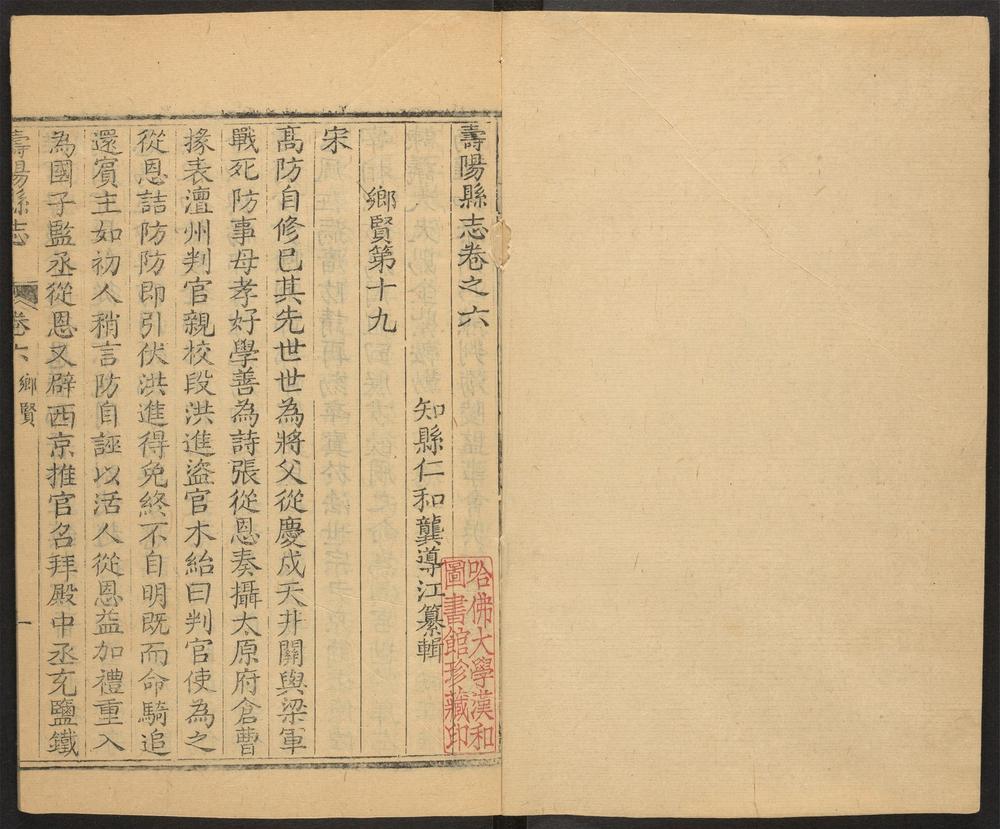 壽陽縣志卷之六
知縣仁和龔導江纂輯
鄉賢第十九
宋
高防自修巳其先世世為將父從慶戍天井關與梁軍
戰死防事母孝好學善為詩張從恩奏攝太原府倉曹
掾表澶州判官親校段洪進盜官木紿曰判官使為之
從恩詰防防即引伏洪進得免終不自明既而命騎追
還賓主如初人稍言防自誣以活人從恩益加禮重入
為國子監丞從恩又辟西京推官名拜殿中丞充鹽鐵
壽陽縣志
卷六
鄉賢
一
哈佛大學漢和
圖書館珍藏印